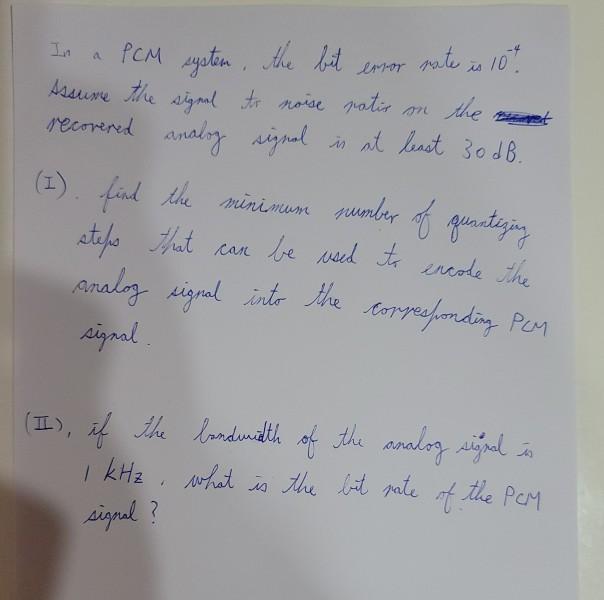 In a PCM system, the bit error rate is 10⁻⁴.
Assume the signal to noise ratio on the
recovered analog signal is at least 30 dB.
(I). find the minimum number of quantizing
steps that can be used to encode the
analog signal into the corresponding PCM
signal.
(II), if the bandwidth of the analog signal is
1 kHz, what is the bit rate of the PCM
signal?